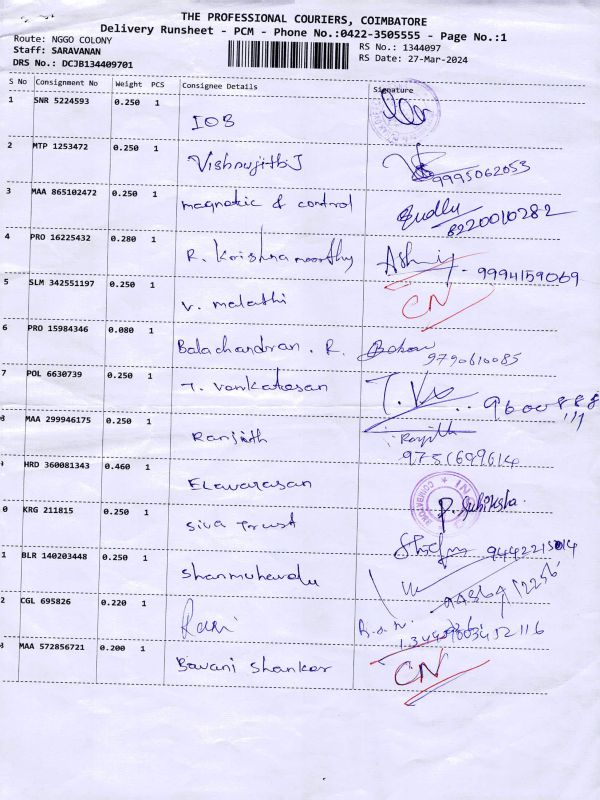 THE PROFESSIONAL COURIERS, COIMBATORE
Delivery Runsheet - PCM - Phone No.:0422-3505555 - Page No.:1
Route: NGGO COLONY
RS No.: 1344097
Staff: SARAVANAN
RS Date: 27-Mar-2024
DRS No.: DCJB134409701
S No Consignment No Weight PCS Consignee Details Signature
1 SNR 5224593 0.250 1
IOB
2 MTP 1253472 0.250 1
Vishnujith J
9995062053
3 MAA 865102472 0.250 1
magnetic & control
8220010282
4 PRO 16225432 0.280 1
R. Krishnamoorthy
9994159069
5 SLM 342551197 0.250 1
V. malathi CN
6 PRO 15984346 0.080 1
Balachandran . R.
9790610085
7 POL 6630739 0.250 1
T. Venkatesan
MAA 299946175 0.250 1
Ranjith
9751699614
HRD 360081343 0.460 1
Elavarasan
0 KRG 211815 0.250 1
P. Subiksha
Siva Trust
9442215014
1 BLR 140203448 0.250 1
Shanmuhavelu
2 CGL 695826 0.220 1
Ravi
MAA 572856721 0.200 1
Bavani Shanker CN